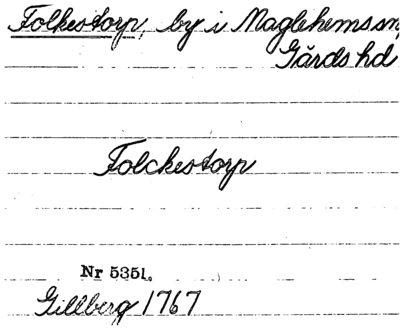 Folkestorp, by i Maglehems sn,
Gärds hd
Folckestorp
Nr 5351.
Gillberg 1767